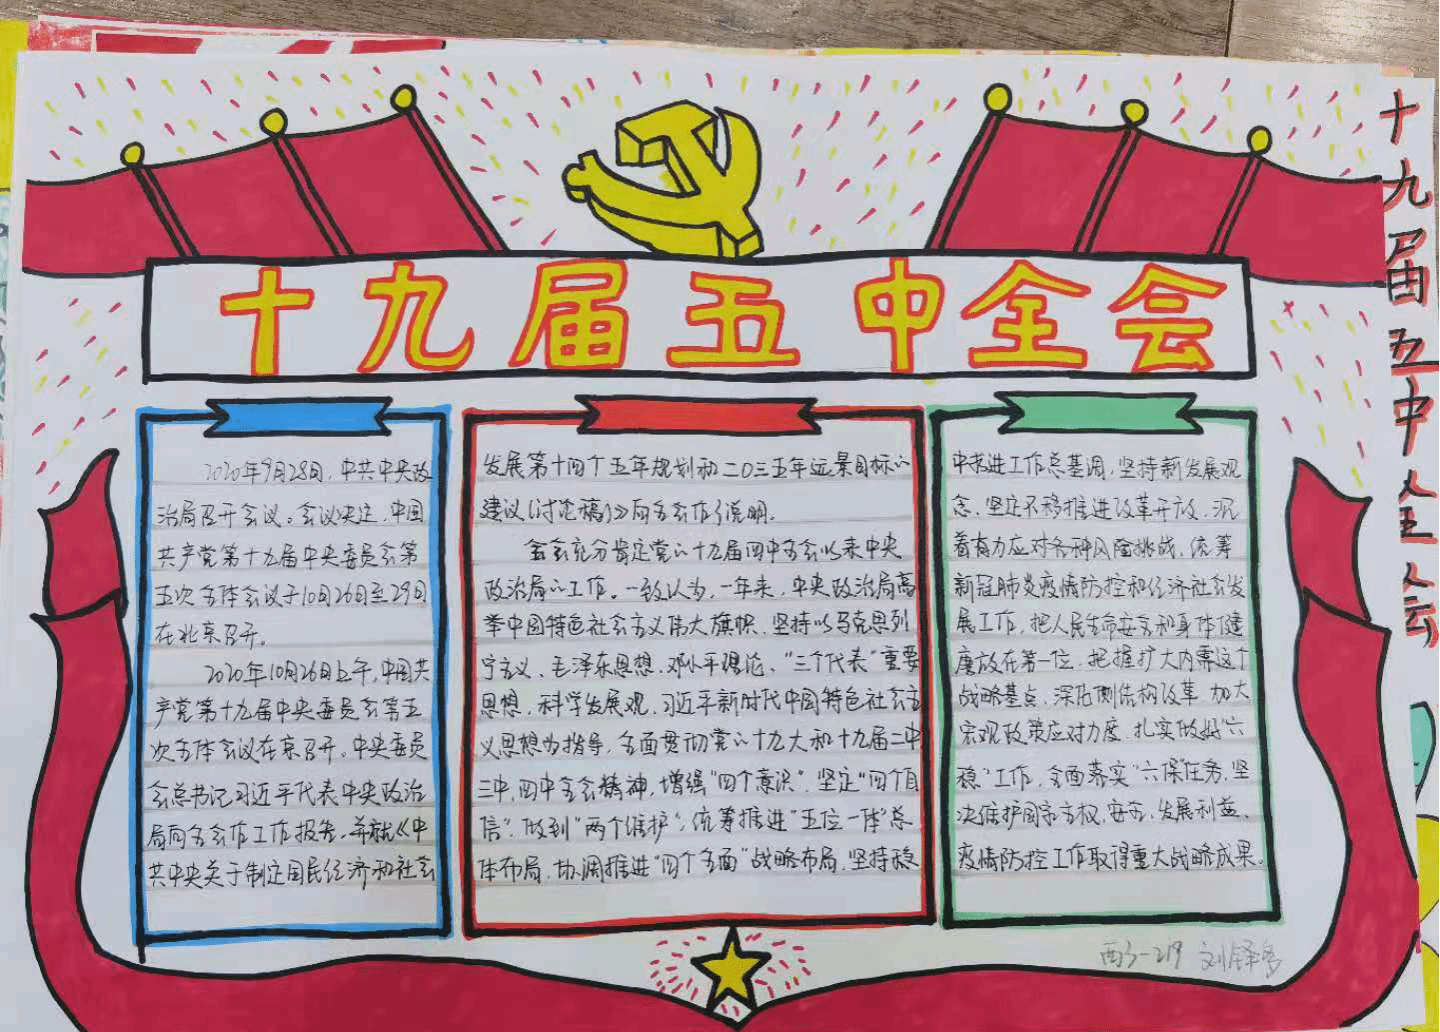 十九届五中全会
2020年9月28日，中共中央政
治局召开会议。会议决定，中国
共产党第十九届中央委员会第
五次全体会议于10月26日至29日
在北京召开。
2020年10月26日上午，中国共
产党第十九届中央委员会第五
次全体会议在京召开。中央委员
会总书记习近平代表中央政治
局向全会作工作报告，并就《中
共中央关于制定国民经济和社会
发展第十四个五年规划和二〇三五年远景目标的
建议（讨论稿）》向全会作了说明。
全会充分肯定党的十九届四中全会以来中央
政治局的工作。一致认为，一年来，中央政治局高
举中国特色社会主义伟大旗帜，坚持以马克思列
宁主义、毛泽东思想、邓小平理论、“三个代表”重要
思想、科学发展观、习近平新时代中国特色社会主
义思想为指导，全面贯彻党的十九大和十九届二中
三中、四中全会精神，增强“四个意识”、坚定“四个自
信”、做到“两个维护”，统筹推进“五位一体”总
体布局，协调推进“四个全面”战略布局，坚持稳
中求进工作总基调，坚持新发展观
念，坚定不移推进改革开放，沉
着有力应对各种风险挑战，统筹
新冠肺炎疫情防控和经济社会发
展工作，把人民生命安全和身体健
康放在第一位，把握扩大内需这个
战略基点，深化侧结构改革，加大
宏观政策应对力度，扎实做好“六
稳”工作，全面落实“六保”任务，坚
决维护国家主权、安全、发展利益，
疫情防控工作取得重大战略成果。
刘铎
十九届五中全会